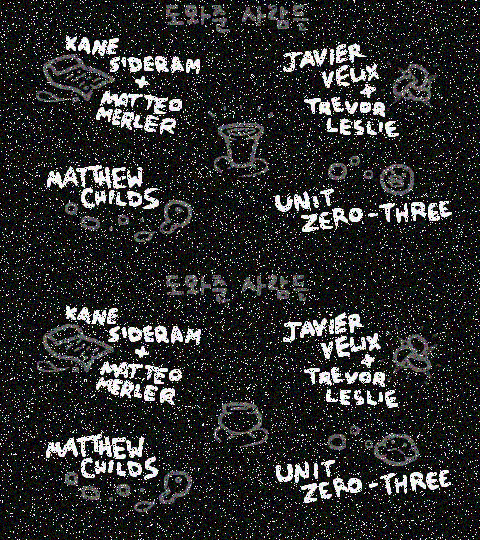 도와줄 사람들
KANE
SIDERAM
+
MATTEO
MERLER
JAVIER
VELIX
+
TREVOR
LESLIE
MATTHEW
CHILDS
UNIT
ZERO-THREE
도와줄 사람들
KANE
SIDERAM
+
MATTEO
MERLER
JAVIER
VELIX
+
TREVOR
LESLIE
MATTHEW
CHILDS
UNIT
ZERO-THREE